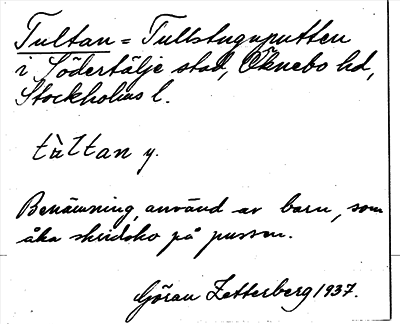 Tultan = Tullstuguputten
i Södertälje stad, Öknebo hd,
Stockholms l.
tùltan y.
Benämning, använd av barn, som
åka skridsko på pussen.
Göran Zetterberg 1937.